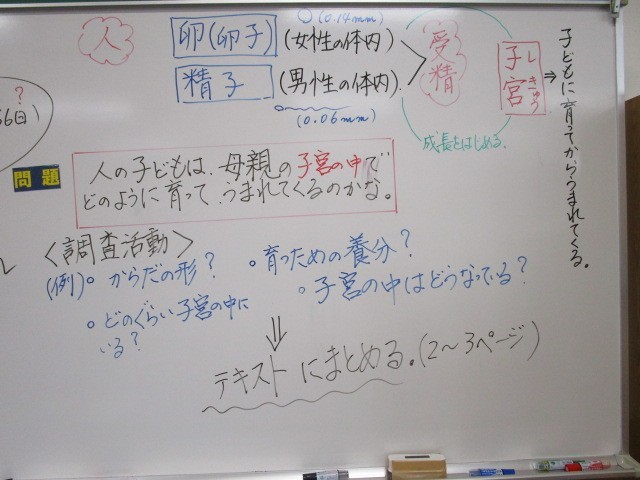 人
卵(卵子)(女性の体内)
(0.14mm)
精子 (男性の体内)
(0.06mm)
受精
子宮
しきゅう
⇒
子どもに育ってからうまれてくる。
成長をはじめる。
?
66日)
問題
人の子どもは、母親の子宮の中で
どのように育って、うまれてくるのかな。
〈調査活動〉
(例)。からだの形?
。育つための養分?
。どのぐらい子宮の中に
いる?
。子宮の中はどうなっている?
テキストにまとめる。(2〜3ページ)